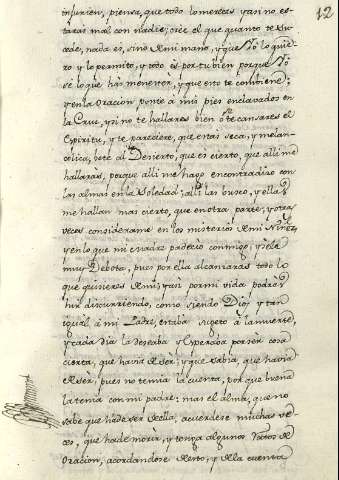 12
injurien, piensa, que todo lo mereces y asi no es-
taras mal con nadie; cree el que quanto te su-
cede, nada es, sino de mi mano, y que Yo lo quie-
ro y lo permito, y todo es por tu bien porque Yo
se lo que has menester, y que esto te combiene;
y en la oracion, ponte a mis pies enclavados en
la Cruz, y si no te hallares bien o te cansares el
Espiritu, y te pareciere, que estas seca, y melan-
colica, vete al Desierto, que es cierto, que alli me
hallaras, porque alli me hago encontradiso con
las almas en la Soledad; alli las busco, y ellas
me hallan mas cierto, que en otra parte, y otras
veces considerame en los misterios de mi Niñez
y en lo que mi madre padecio conmigo, y sele
muy Debota, pues por ella alcansaras todo lo
que quisieres de mi; y asi por mi vida podras
hir discurriendo, como siendo Dios, y tan
igual á mi Padre, estaba sugeto á la muerte,
y cada dia la deseaba y esperaba por ser cosa
cierta, que havia de ser, y que sabia, que havia
de ser, pues no temia la cuenta, por que buena
la tenia con mi padre: mas el alma, que no
sabe que ha de ser de ella, acuerdese muchas ve-
ces, que ha de morir, y tenga algunos ratos de
oracion, acordandose de esto, y de la cuenta